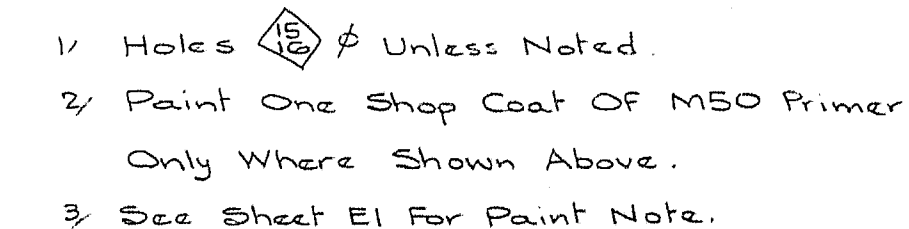 1/ Holes 15/16 ϕ Unless Noted.
2/ Paint One Shop Coat Of M50 Primer
Only Where Shown Above.
3/ See Sheet E1 For Paint Note.